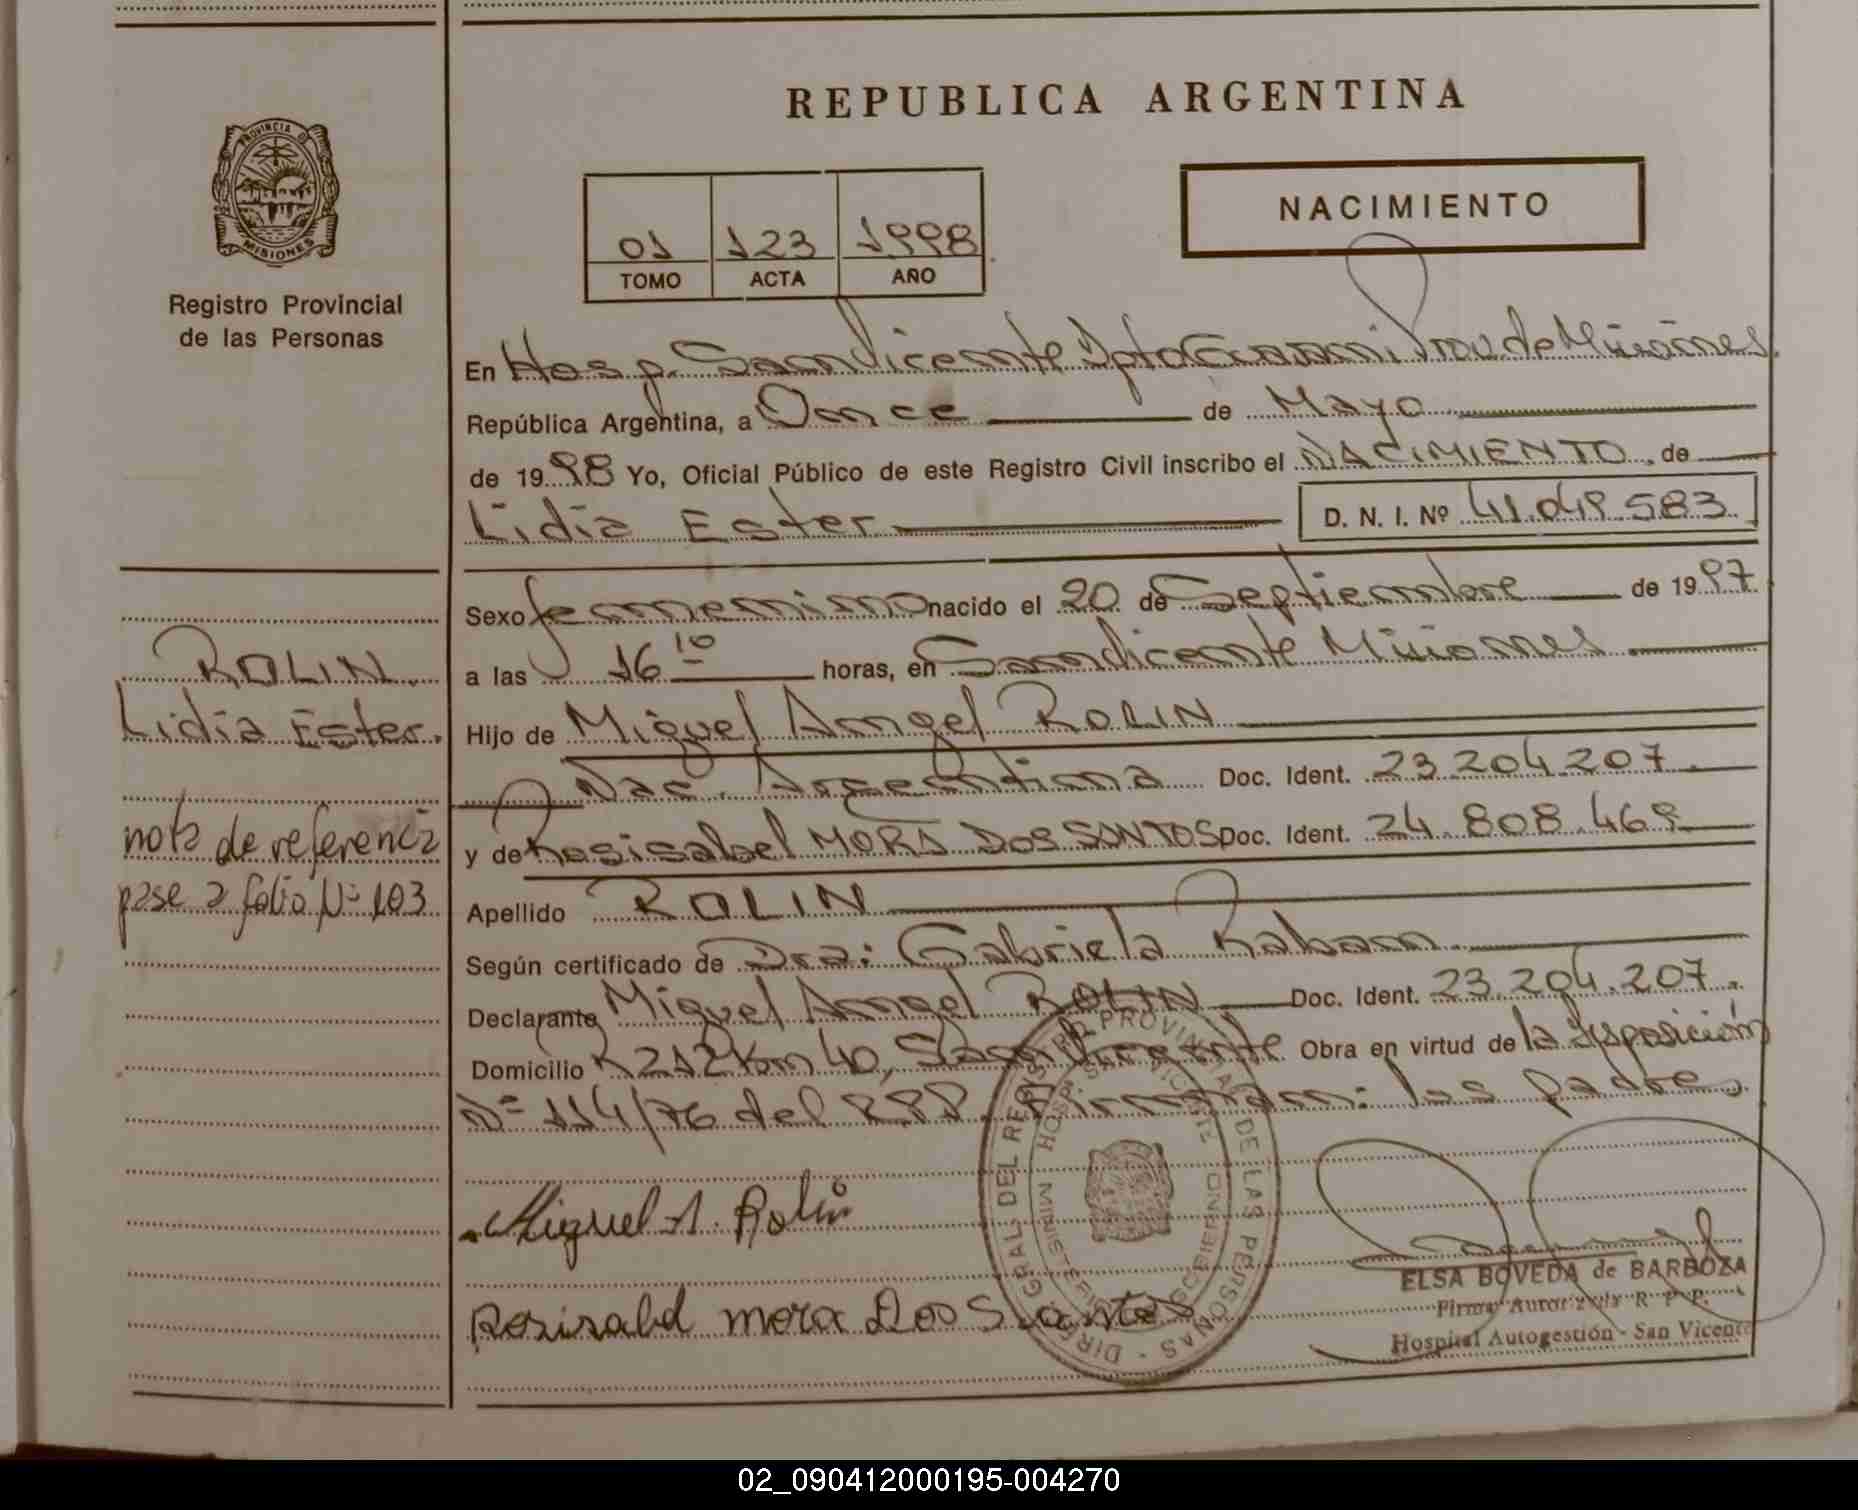 REPUBLICA ARGENTINA
PROVINCIA D
MISIONES
Registro Provincial
de las Personas
01 123 1998
TOMO ACTA AÑO
NACIMIENTO
En Hosp. San Vicente Dpto Guarani Prov de Misiones.
República Argentina, a Once de Mayo
de 1998 Yo, Oficial Público de este Registro Civil inscribo el NACIMIENTO de
Lidia Ester D. N. I. Nº 41.049.583
Sexo femenino nacido el 20 de Septiembre de 1997
a las 16 10 horas, en San Vicente Misiones
Hijo de Miguel Angel ROLIN
Nac. Argentina Doc. Ident. 23.204.207
y de Rosisabel MORA DOS SANTOS Doc. Ident. 24.808.469
Apellido ROLIN
Según certificado de Dra: Gabriela Rabann
Declarante Miguel Angel ROLIN Doc. Ident. 23.204.207.
Domicilio R212 Km 40, San Vicente Obra en virtud de la disposición
Nº 114/76 del R.P.P. Firman: los padres
ROLIN
Lidia Ester.
nota de referencia
pase a folio Nº 103
Miguel A. Rolin
Rosisabel mora Dos Santos
DIREC. GRAL DEL REGISTRO PROVINCIAL DE LAS PERSONAS
HOSP. SAN VICENTE
MINISTERIO GOBIERNO
ELSA BOVEDA de BARBOZA
Firma Autorizada R. P. P.
Hospital Autogestión - San Vicente
02_090412000195-004270